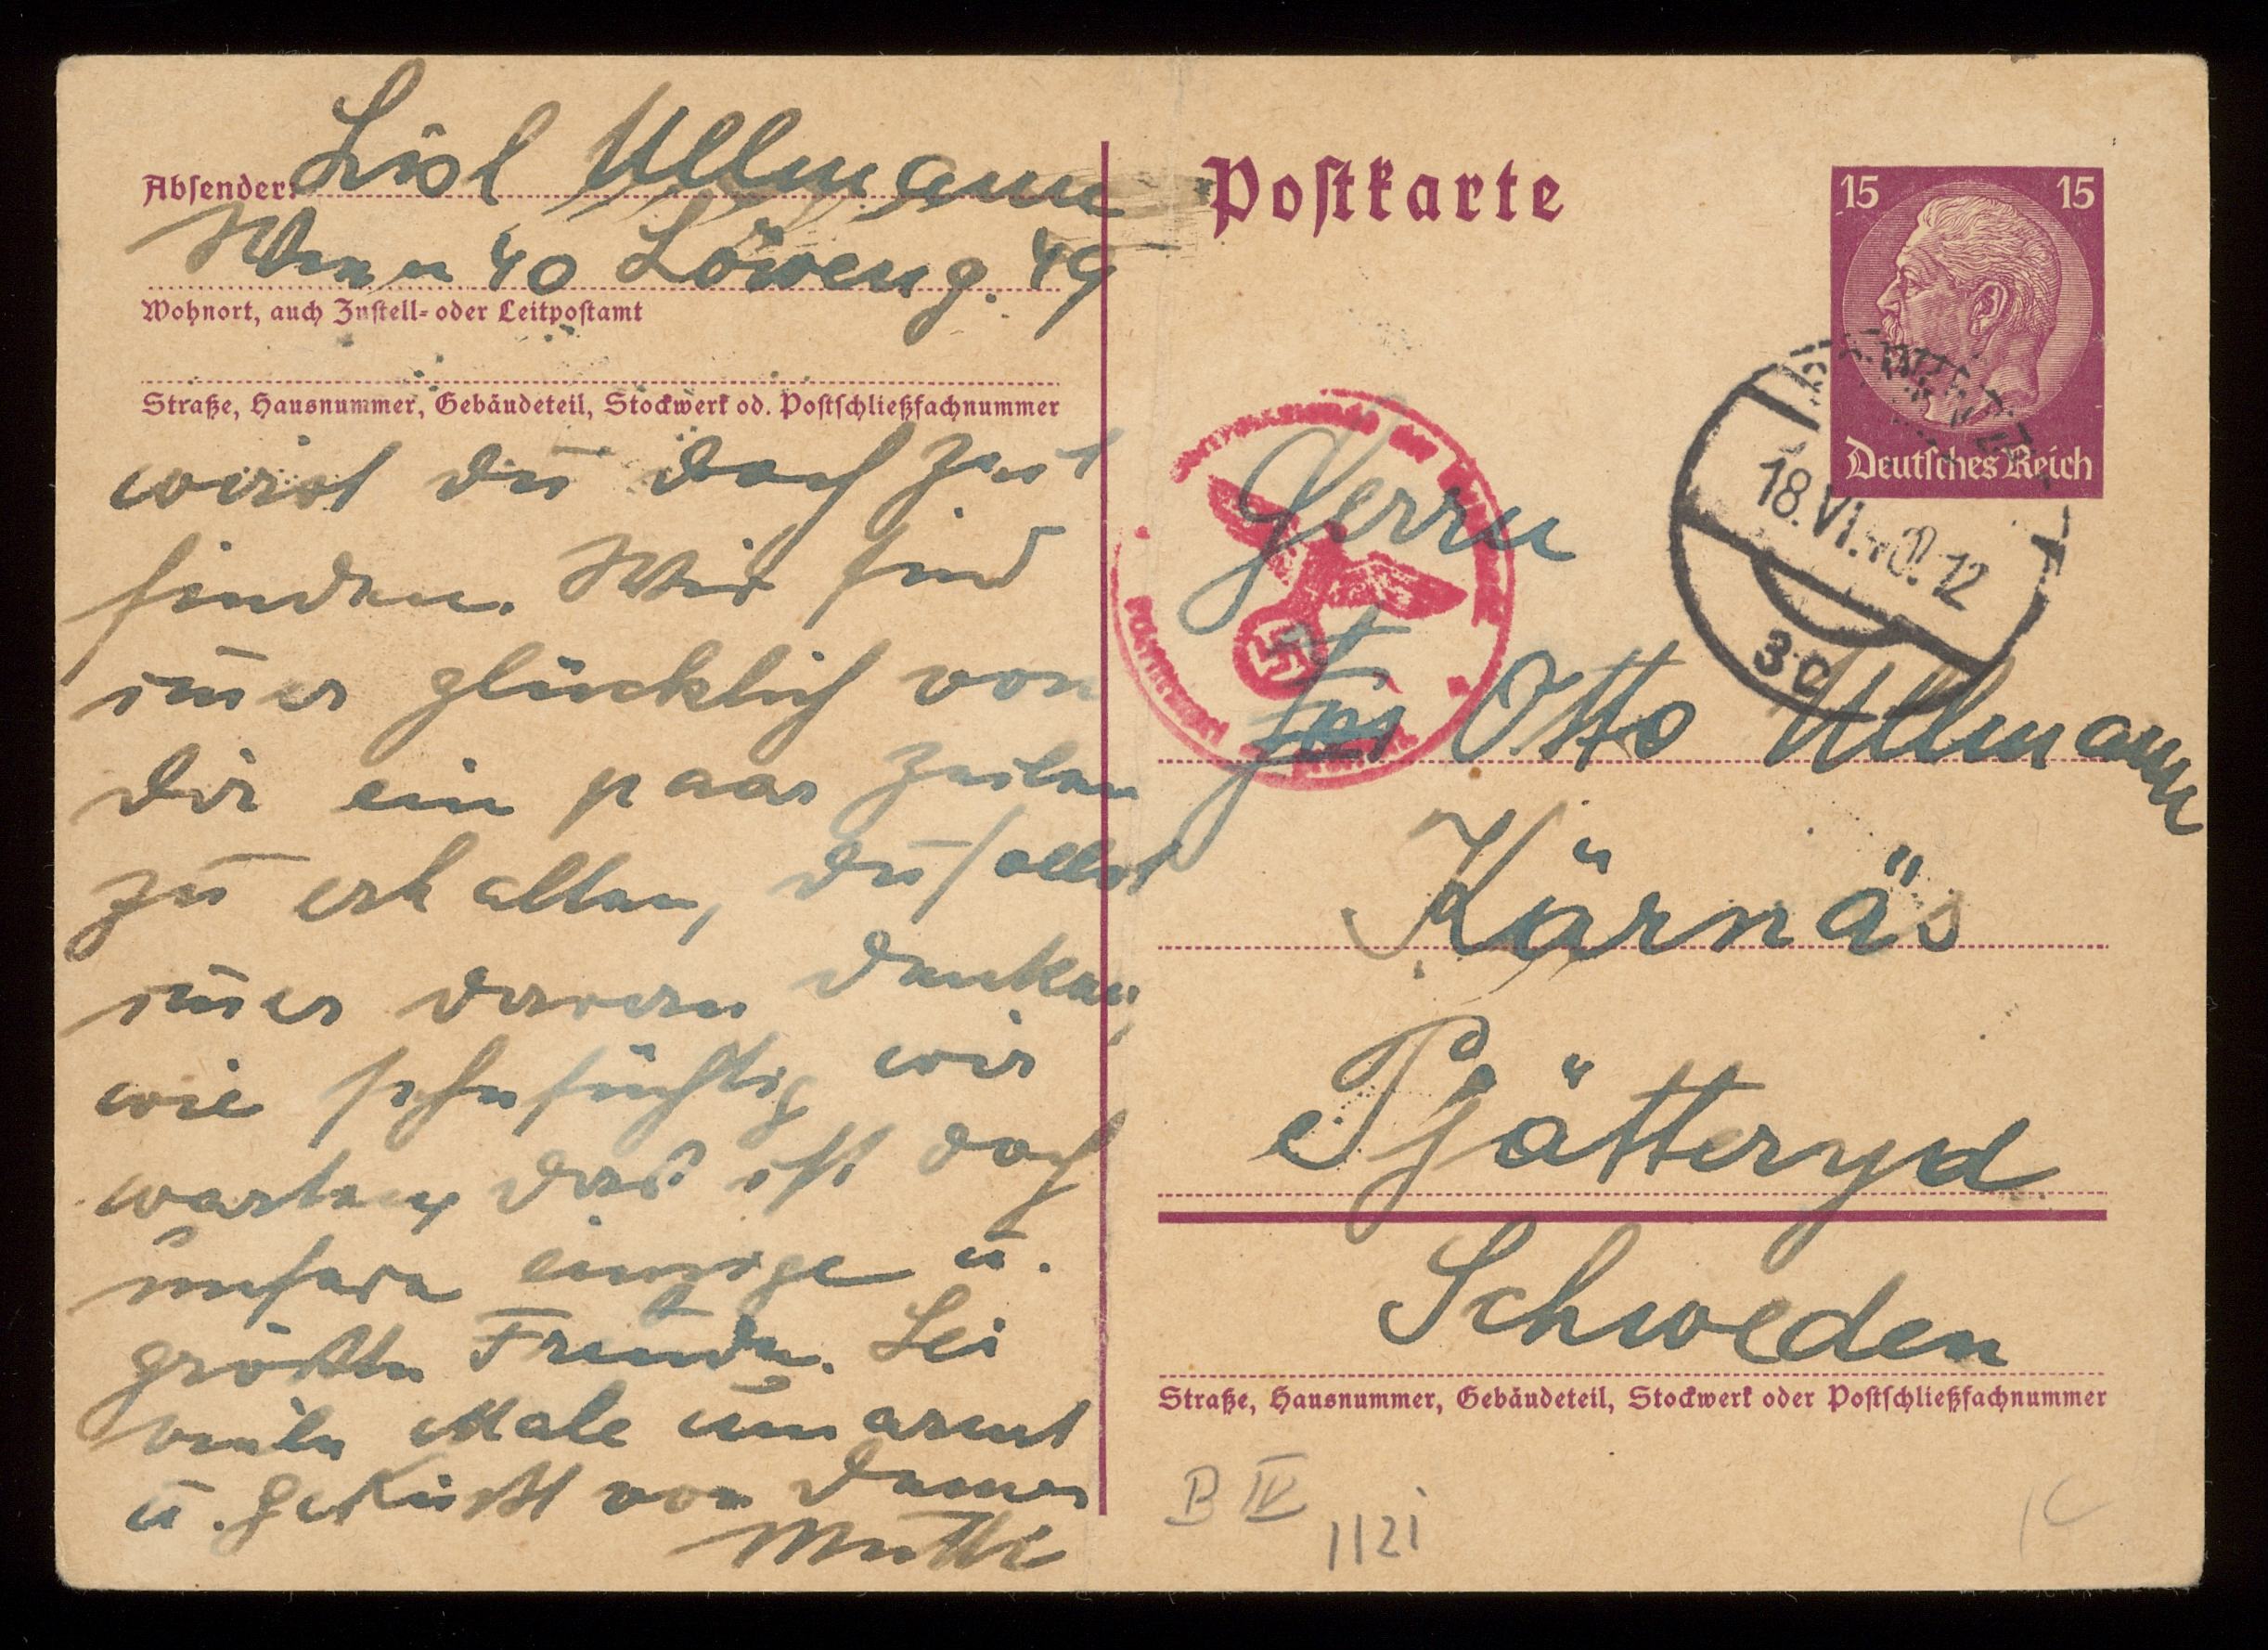 Absender: Lisl Ullmann
Wien 40 Löweng. 49
Wohnort, auch Zustell- oder Leitpostamt
Straße, Hausnummer, Gebäudeteil, Stockwerk od. Postschließfachnummer
wirst du doch Zeit
finden. Wir sind
im̅er glücklich von
Dir ein paar Zeilen
zu erhalten, du sollst
im̅er daran denken,
wie sehnsüchtig wir
warten, das ist doch
unsere einzige u.
größte Freude. Sei
viele Male umarmt
u. geküßt von Deiner
Mutti
Postkarte
15 15
Deutsches Reich
18.VI.40.12
3c
Oberkommando der Wehrmacht
Herrn
Otto Ullmann
Kärnäs
Pjätteryd
Schweden
Straße, Hausnummer, Gebäudeteil, Stockwerk oder Postschließfachnummer
B IV
1121